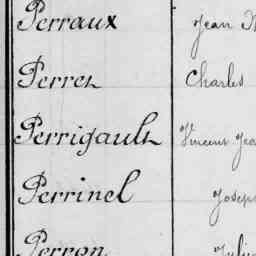 Perraux Jean
Perret Charles
Perrigault Vincent Jea
Perrinel Joseph
Perron Julie